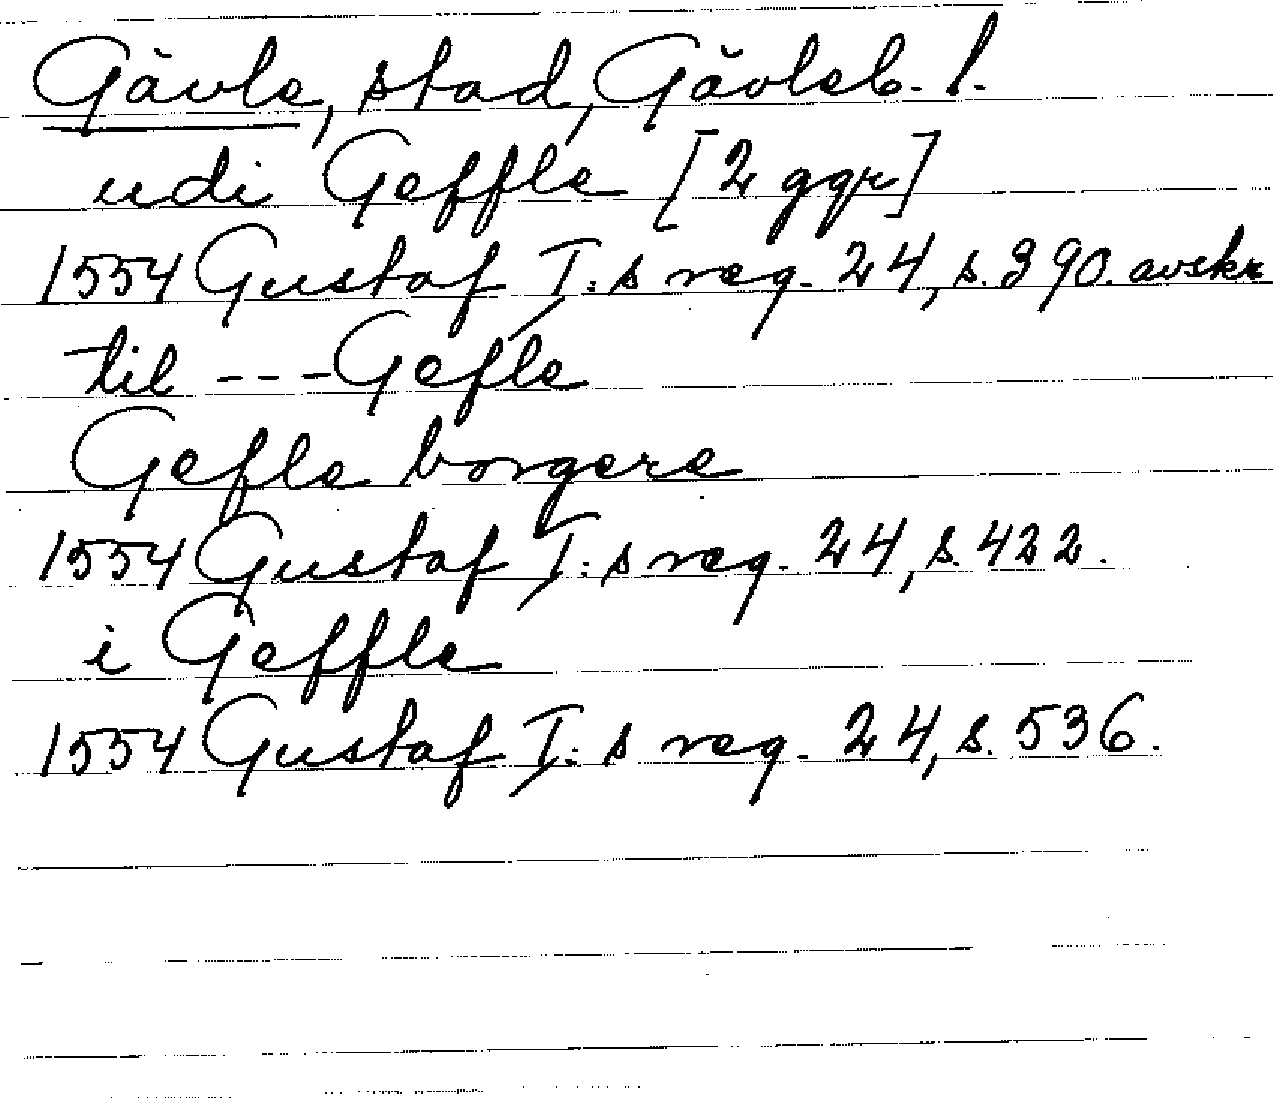 Gävle, stad, Gävleb. l.
udi Geffle [2 ggr]
1554 Gustaf I:s reg. 24, s. 390. avskr
til --- Gefle
Gefle borgere
1554 Gustaf I:s reg. 24, s. 422.
i Geffle
1554 Gustaf I:s reg. 24, s. 536.